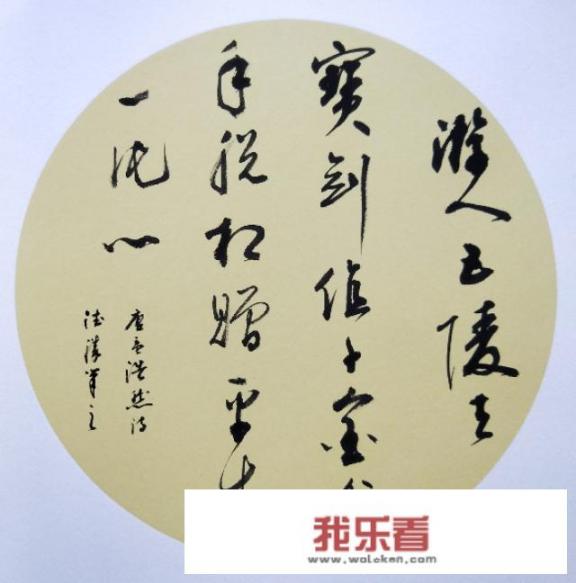 游人五陵去
寶劍值千金分
手脱相贈平生
一片心
唐孟浩然詩
筆之
我乐看
www.woleken.com